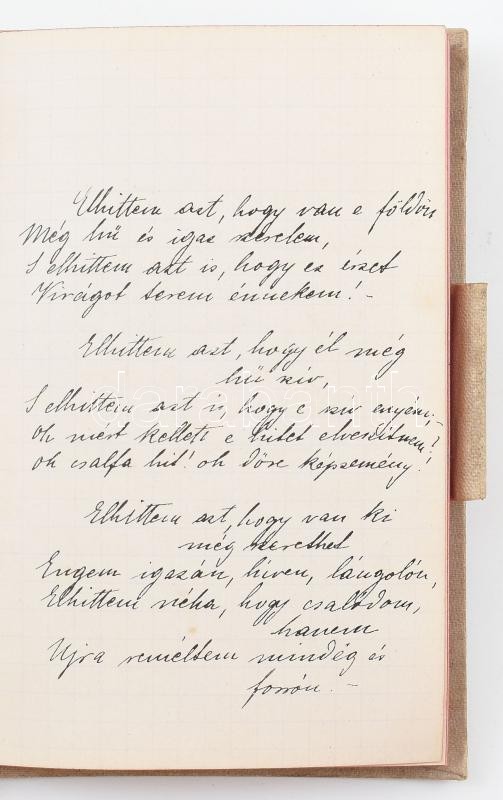 Elhittem azt, hogy van e földön
Még hű és igaz szerelem,
S elhittem azt is, hogy ez érzet
Virágot terem énnekem! -
Elhittem azt, hogy él még
hű szív,
S elhittem azt is, hogy e szív enyém; -
oh mért kellett e hitet elveszítnem?
oh csalfa hit! oh dőre képzemény!
Elhittem azt, hogy van ki
még szerethet
Engem igazán, híven, lángolón,
Elhittem néha, hogy csalódom,
hanem
Ujra reméltem mindég és
forrón. -
darabanth